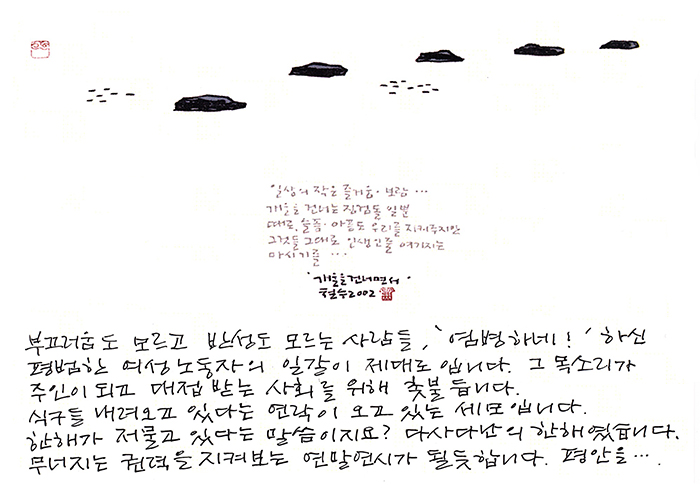 일상의 작은 즐거움·보람...
개울을 건너는 징검돌 일 뿐
때로, 슬픔·아픔도 우리를 지켜주지만
그것들 그대로 인생인줄 여기지는
마시기를...
'개울을건너면서'
철수2002
부끄러움도 모르고 반성도 모르는 사람들, '염병하네!' 하신
평범한 여성노동자의 일갈이 제대로입니다. 그 목소리가
주인이 되고 대접 받는 사회를 위해 촛불 듭니다.
식구들 내려오고 있다는 연락이 오고 있는 세모입니다.
한해가 저물고 있다는 말씀이지요? 다사다난의 한해였습니다.
무너지는 권력을 지켜보는 연말연시가 될듯합니다. 평안을...